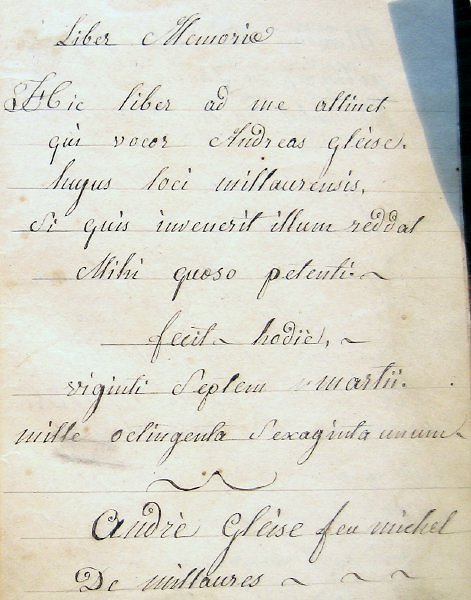 Liber Memoriæ
Hic liber ad me attinet
qui vocor Andreas gleise.
hujus loci millaurensis,
Si quis invenerit illum reddat
Mihi quoso petenti.
fecit hodiè,
viginti Septem martii.
mille octingenta Sexaginta unum
Andrè Gleise feu michel
De millaures